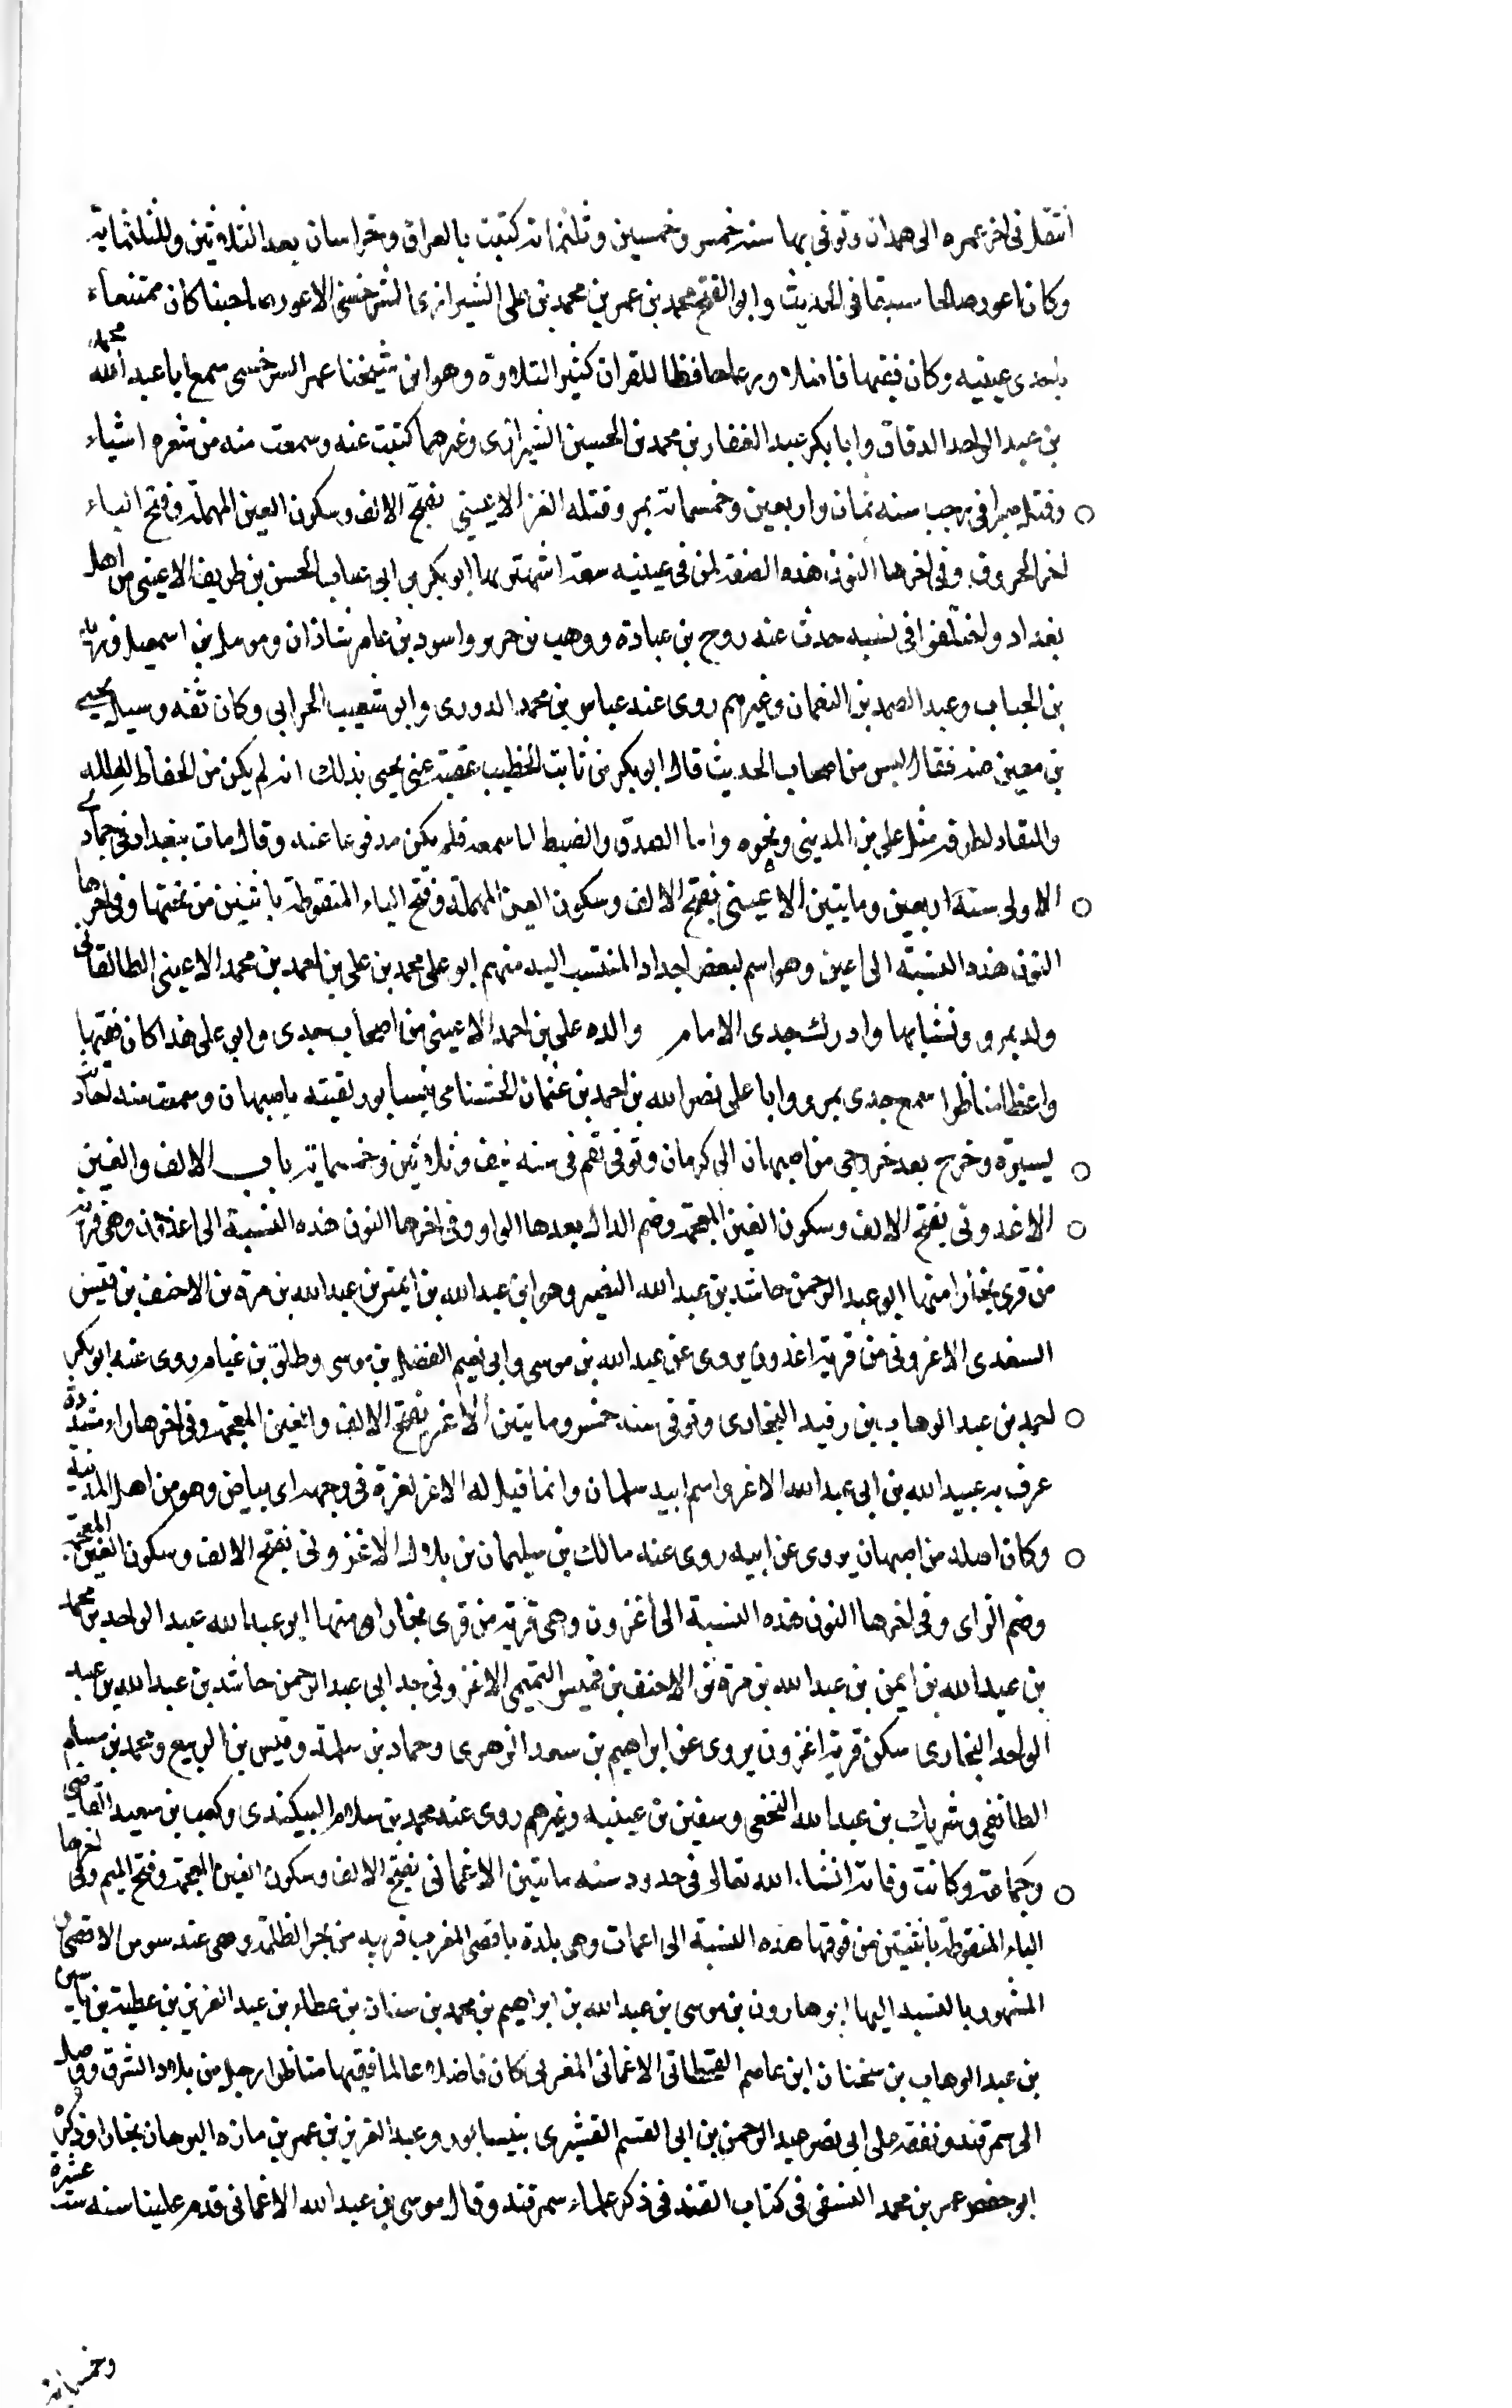 انتقل فى اخر عمره الى همدان وتوفى بها سنه خمس وخمسين وثلثماته كتبت بالعراق وخراسان بعد الثلاثين والثلثمايه
وكان اعور صالحا سبتما فى الحديث وابو الفتح محمد بن عمر بن محمد بن على الشيرازى السرخسى الاعور صاحبنا كان ممتنعاء
باحدى عينيه وكان فقيها فاضلا ورعا حافظا للقران كثير التلاوة وهو ابن شيخنا عمر السرخسى سمع ابا عبد الله محمد
بن عبد الواحد الدقاق وابا بكر عبد الغفار بن محمد بن الحسين الشيرازى وغيرهما كتبت عنه وسمعت منه من شعره اشياء
وقتل صبرا فى رجب سنه ثمان واربعين وخمسماته بمرو قتله الغز الاعينى بفتح الالف وسكون العين المهملة وفتح الياء
اخر الحروف وفى اخرها النون هذه الصفة لمن فى عينيه سعة اشتهر بها ابو بكر بن ابى عتاب الحسن بن طريف الاعينى من اهل
بغداد واختلفوا فى نسبه حدث عنه روح بن عبادة ووهب بن جرير واسود بن عامر شاذان ومومل بن اسمعيل وزيد
بن الحباب وعبد الصمد بن النعمان وغيرهم روى عنه عباس بن محمد الدورى وابو شعيب الحرانى وكان ثقه وسيل يحيى
بن معين عنه فقال ليس من اصحاب الحديث قال ابو بكر بن ثابت الخطيب عقيبه عنى يحيى بذلك انه لم يكن من الحفاظ لعلله
والنقاد لطرقه مثل على بن المدينى ونحوه واما الصدق والضبط لما سمعه فلم يكن مدفوعا عنه وقال مات ببغداد فى جمادى
الاولى سنة اربعين ومايتين الاعينى بفتح الالف وسكون العين المهملة وفتح الياء المنقوطة باثنين من تحتها وفى اخرها
النون هذه النسبة الى اعين وهو اسم لبعض اجداد المنتسب اليه منهم ابو على محمد بن على بن احمد بن محمد الاعينى الطالقانى
ولد بمرو ونشا بها وادرك جدى الامام والده على بن احمد الاعينى من اصحاب جدى وابو على هذا كان فقيها
واعظا مناظرا سمع جدى بمرو وابا على نصر الله بن احمد بن عثمان الخشنامى بنيسابور لقيته باصبهان وسمعت منه احاديث
يسيرة وخرج بعد خروجى من اصبهان الى كرمان وتوفى بقم فى سنه نيف وثلاثين وخمسماية باب الالف والغين
الاغدونى بفتح الالف وسكون الغين المعجمة وضم الدال بعدها الواو وفى اخرها النون هذه النسبة الى اغذون وهى قرية
من قرى بخارا منها ابو عبد الرحمن حاشد بن عبد الله القصير وهو ابن عبد الله بن ايمن بن عبد الله بن مرة بن الاحنف بن قيس
السغدى الاغدونى من قرية اغدون يروى عن عبيد الله بن موسى وابى نعيم الفضل بن موسى وطلق بن غنام روى عنه ابو بكر
احمد بن عبد الوهاب بن رفيد البخارى وتوفى سنه خمس ومايتين الاغر بفتح الالف والغين المعجمة وفى اخرها راء مشددة
عرف به عبيد الله بن ابى عبد الله الاغر واسم ابيه سلمان وانما قيل له الاغر لغرة فى وجهه اى بياض وهو من اهل المدينة
وكان اصله من اصبهان يروى عن ابيه روى عنه مالك بن سليمان بن بلال الاغزونى بفتح الالف وسكون الغين المعجمة
وضم الزاى وفى اخرها النون هذه النسبة الى اغزون وهى قرية من قرى بخارا منها ابو عبد الله عبد الواحد بن محمد
بن عبيد الله بن ايمن بن عبد الله بن مرة بن الاحنف بن قيس التميمى الاغزونى جد ابى عبد الرحمن حاشد بن عبد الله بن عبد
الواحد البخارى سكن قرية اغزون يروى عن ابراهيم بن سعد الزهرى وحماد بن سلمة وقيس بن الربيع ومحمد بن مسلم
الطائفى وشريك بن عبد الله النخعى وسفين بن عيينه وغيرهم روى عنه محمد بن سلام البيكندى وكعب بن سعيد القاضى
وجماعة وكانت وفاته ان شاء الله تعالى فى حدود سنه ماتين الاغماتى بفتح الالف وسكون الغين المعجمة وفتح الميم وفى اخرها
التاء المنقوطة باثنتين من فوقها هذه النسبة الى اغمات وهى بلدة باقصى المغرب قريبه من بحر الظلمة وهى عند سوس الاقصى
المشهور بالنسبه اليها ابو هارون بن موسى بن عبد الله بن ابراهيم بن محمد بن سنان بن عطاء بن عبد العزيز بن عطية بن ياسين
بن عبد الوهاب بن سخنان ابن عاصم القحطانى الاغماتى المغربى كان فاضلا عالما فقيها مناظرا رحل من بلاد الشرق ووصل
الى سمرقند وتفقه على ابى نصر عبد الرحمن بن ابى القسم القشيرى بنيسابور وعبد العزيز بن عمر بن مازه البرهان ببخارا وذكره
ابو حفص عمر بن محمد النسفى فى كتاب القند فى ذكر علماء سمرقند وقال موسى بن عبد الله الاغماتى قدم علينا سنه ست عشره
وخمسمائة